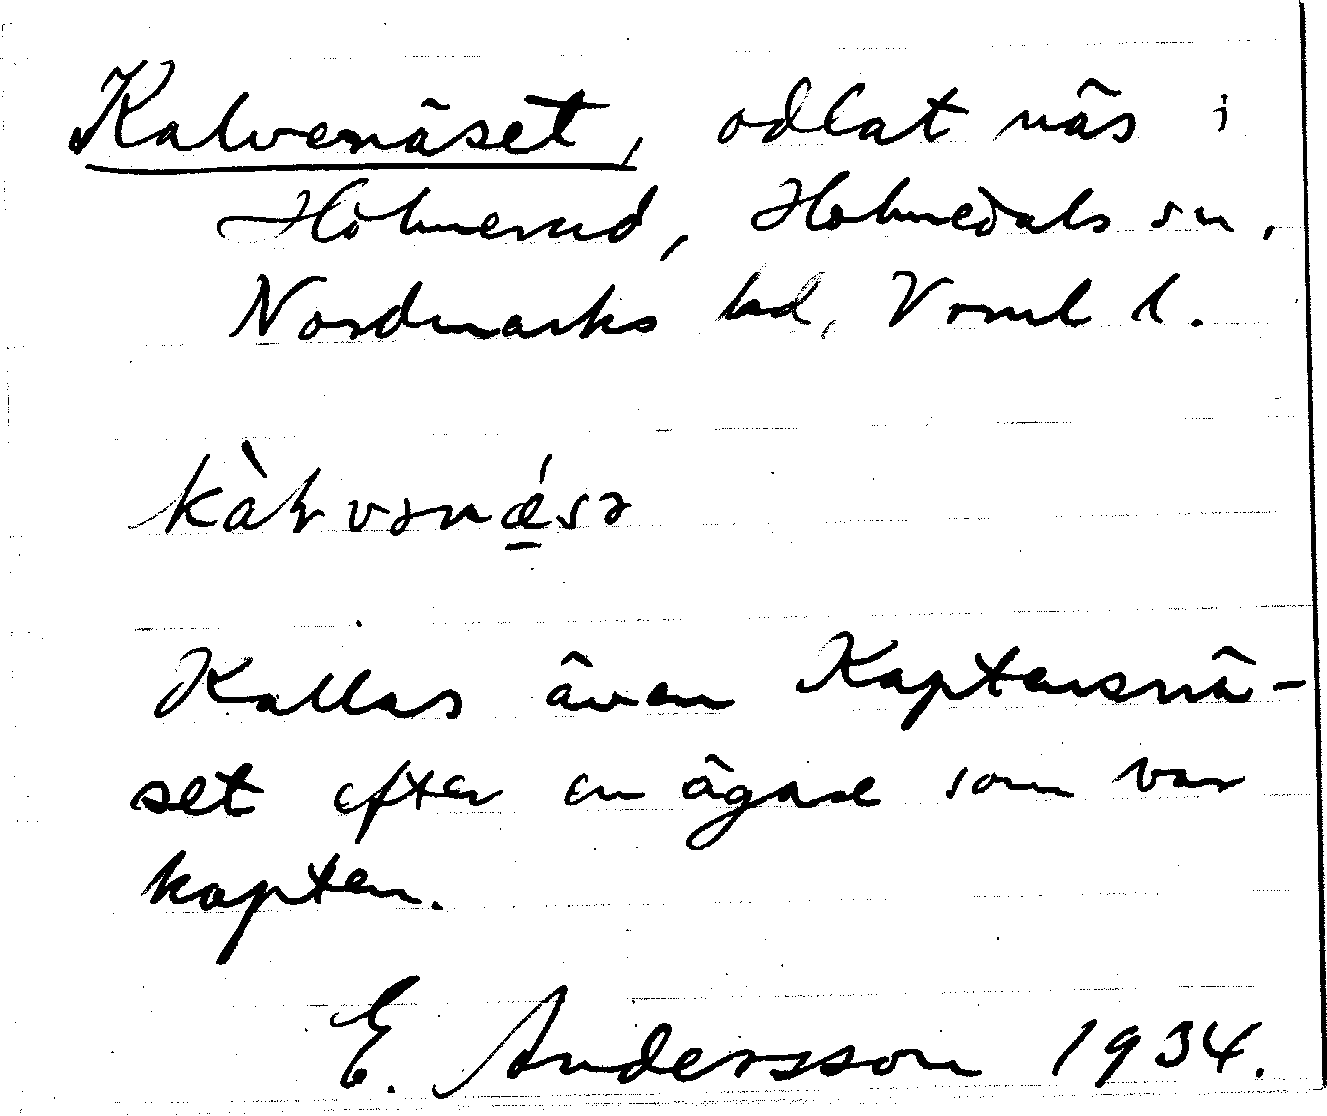 Kalvenäset, odlat näs i
Holmerud, Holmedals sn,
Nordmarks hd, Vrml l.
kàɫvənǽsə
Kallas även Kaptensnä-
set efter en ägare som var
kapten.
E. Andersson 1934.